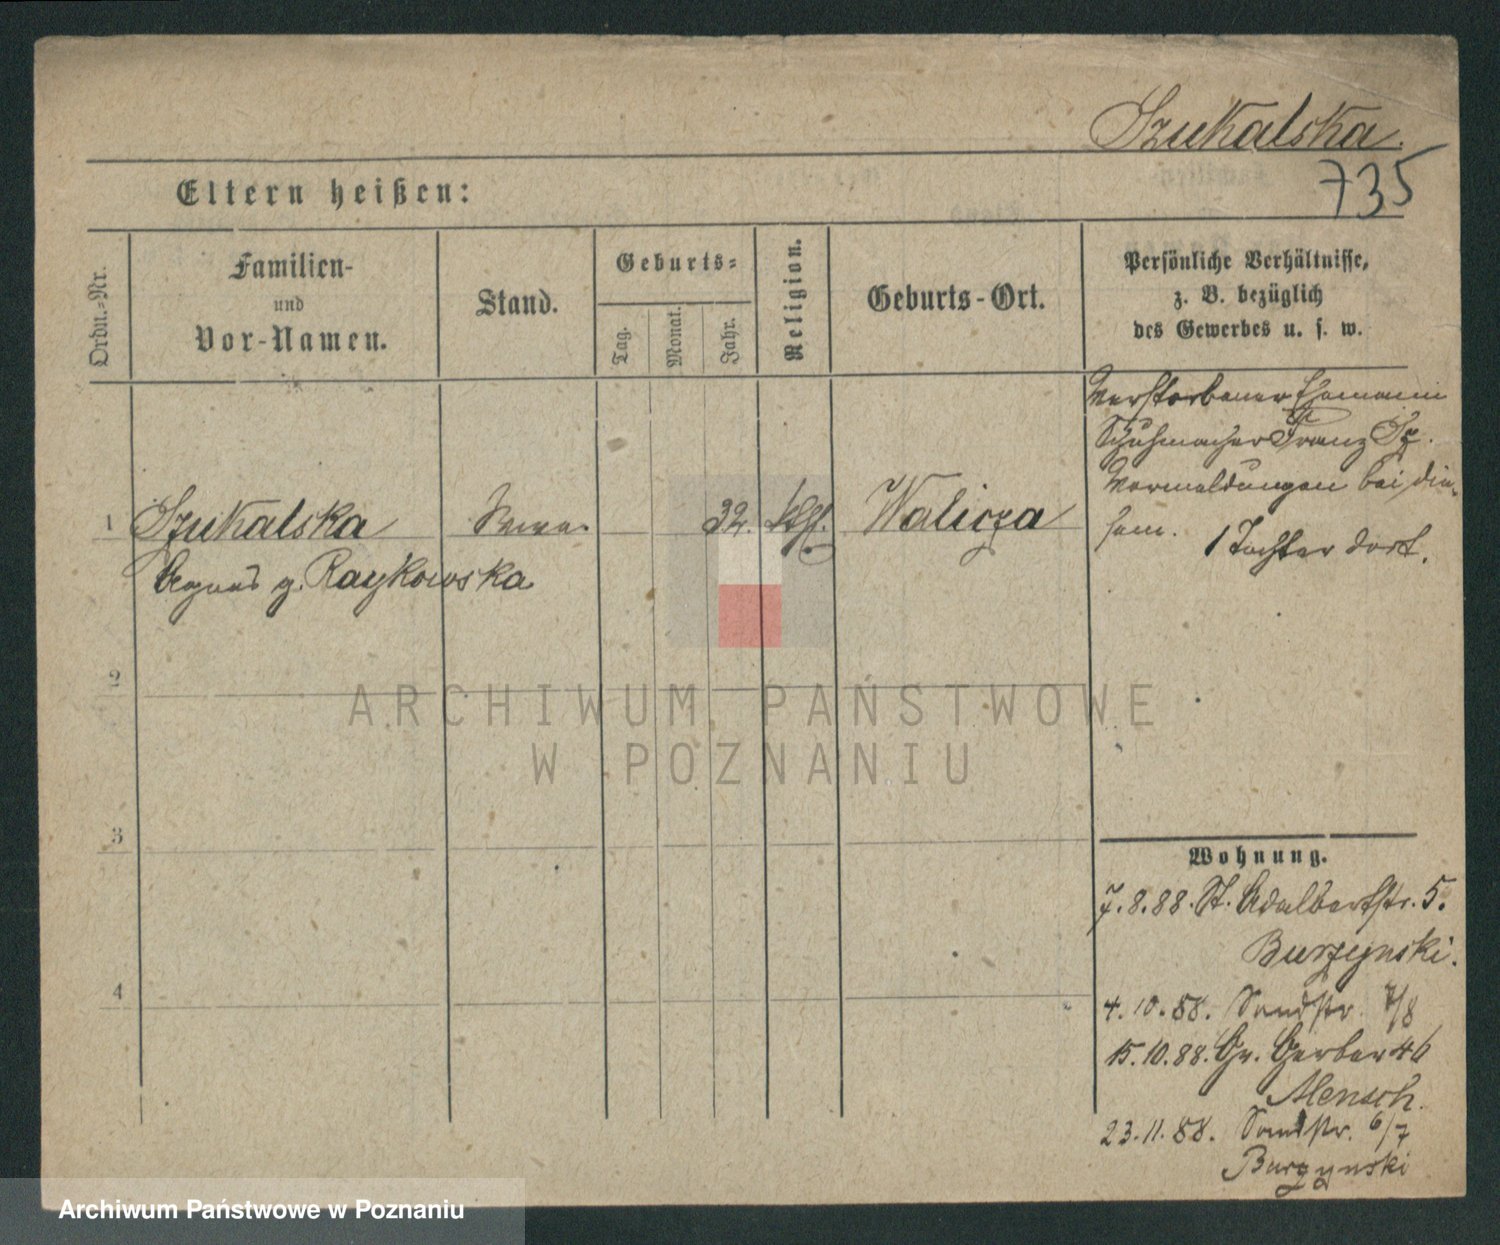 Szukalska.
735
Eltern heißen:
Ordn.-Nr.
Familien-
und
Vor-Namen.
Stand.
Geburts-
Tag.
Monat.
Jahr.
Religion.
Geburts-Ort.
Persönliche Verhältnisse,
z. B. bezüglich
des Gewerbes u. s. w.
Verstorbener Ehemann
Schuhmacher Franz Sz.
Vermeldungen bei die-
sem. 1 Tochter dort.
1 Szukalska 32. kath. Walicza
Agnes g. Raykowska
2
3
4
Wohnung.
7.8.88. St. Adalbertstr. 5.
Burzynski.
4.10.88. Sandstr. 7/8
15.10.88. Gr. Gerber 46
Mensch.
23.11.88. Sandstr. 6/7
Burzynski
ARCHIWUM PAŃSTWOWE
W POZNANIU
Archiwum Państwowe w Poznaniu